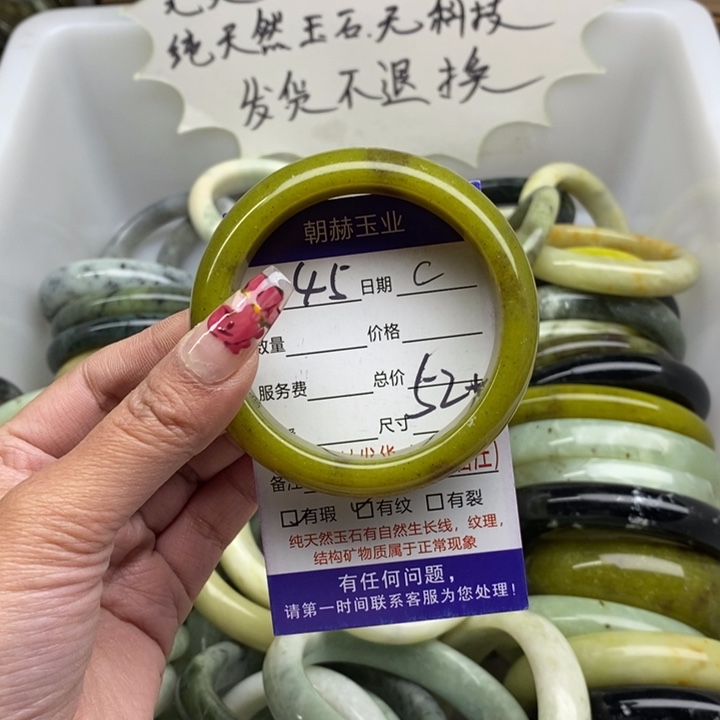 纯天然玉石.无科技
发货不退换
朝赫玉业
45 日期 C
数量 价格
服务费 总价
尺寸 52
备注
有瑕 有纹 有裂
纯天然玉石有自然生长线，纹理，
结构矿物质属于正常现象
有任何问题，
请第一时间联系客服为您处理！